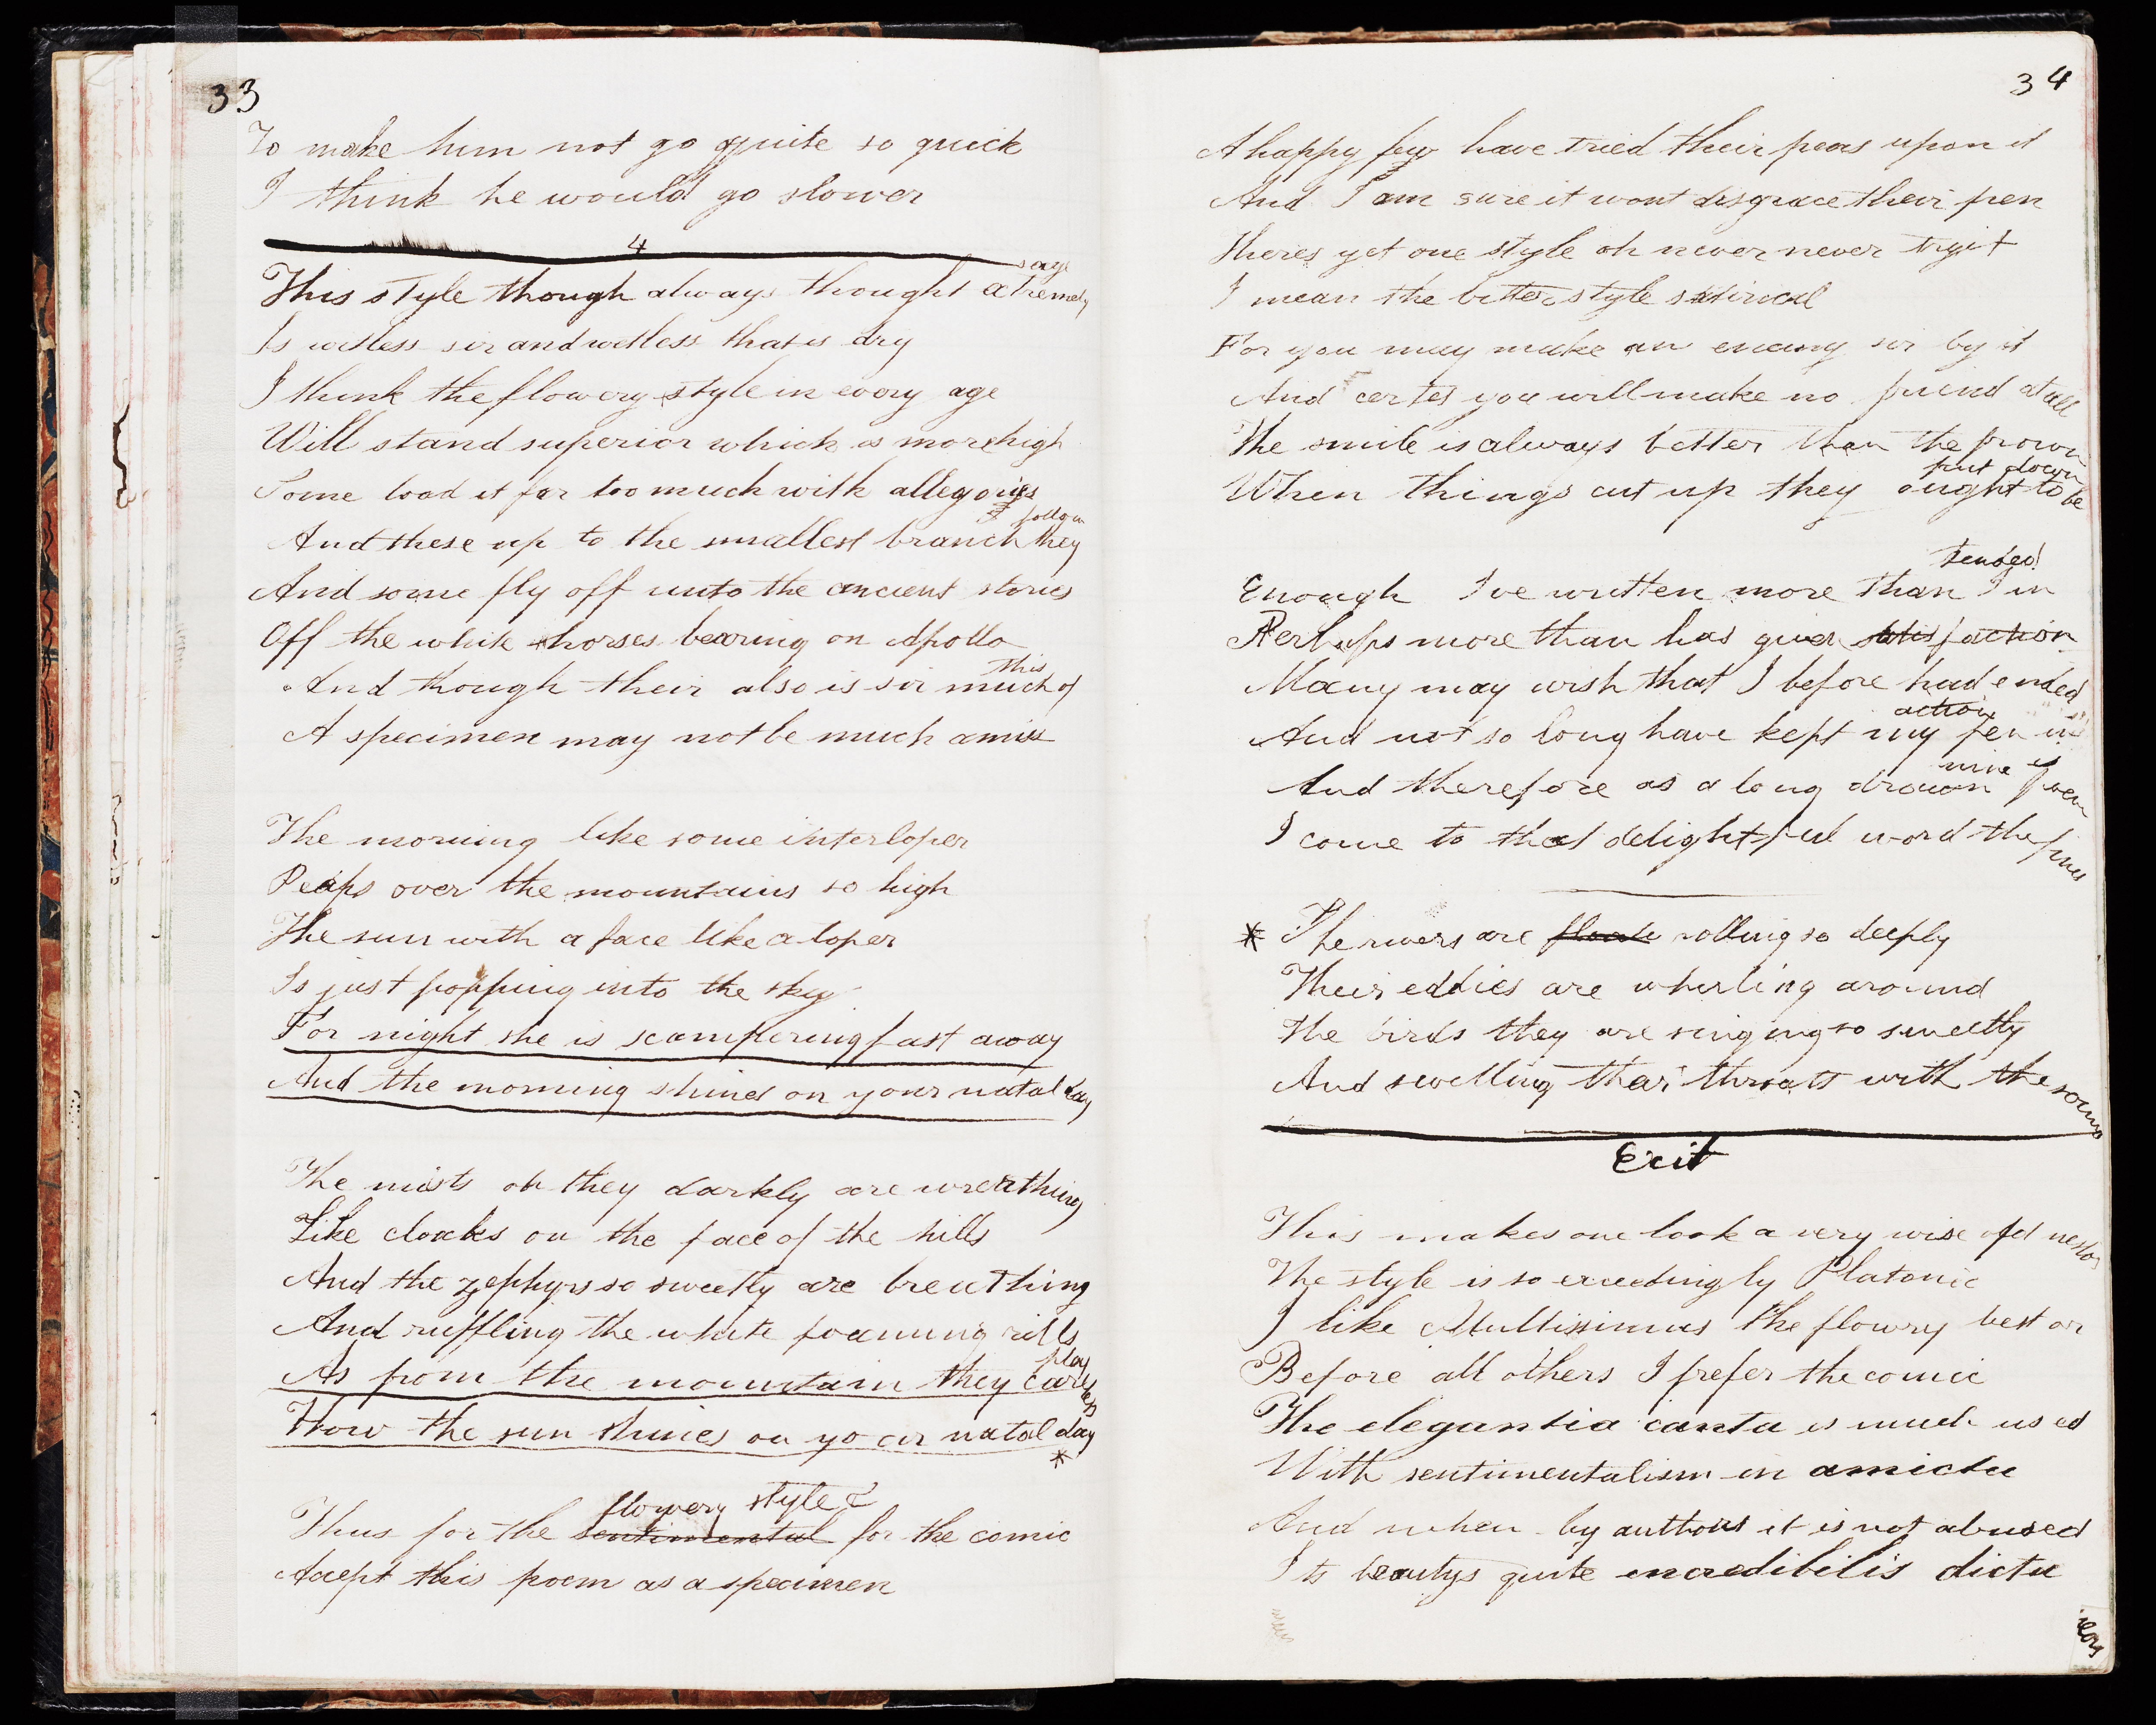 33
To make him not go quite so quick
I think he would go slower
4
This style though always thought extremely sage
Is witless sir and wetless that is dry
I think the flowery style in every age
Will stand superior which is more high
Some load it far too much with allegories
And these up to the smallest branch they follow
And some fly off unto the ancient stories
Off the white horses bearing on Apollo
And though their also is sir much of this
A specimen may not be much amiss
The morning like some interloper
Peeps over the mountains so high
The sun with a face like a toper
Is just popping into the sky
For night she is scampering fast away
And the morning shines on your natal day
The mists oh they darkly are wreathing
Like cloaks on the face of the hills
And the zephyrs so sweetly are breathing
And ruffling the white foaming rills
As from the mountain they carelessly play
How the sun shines on your natal day
*
Thus for the sentimental flowery style & for the comic
Accept this poem as a specimen
34
A happy few have tried their pens upon it
And I am sure it wont disgrace their pen
Theres yet one style oh never never try it
I mean the bitter style satirical
For you may make an enemy sir by it
And certes you will make no friend at all
The smile is always better than the frown
When things cut up they ought to be put down
Enough I've written more than I intended
Perhaps more than has given satisfaction
Many may wish that I before had ended
And not so long have kept my pen in action
And therefore as a long drawn poem mine is
I come to that delightful word the finis
* The rivers are rolling so deeply
Their eddies are wherling around
The birds they are singing so sweetly
And swelling their throats with the sound
Exit
This makes one look a very wise old nestor
The style is so exceedingly Platonic
I like Multissimus the flowry best or
Before all others I prefer the comic
The elegantia canta is much used
With sentimentalism in amictu
And when by authors it is not abused
Its beautys quite incredibilis dictu